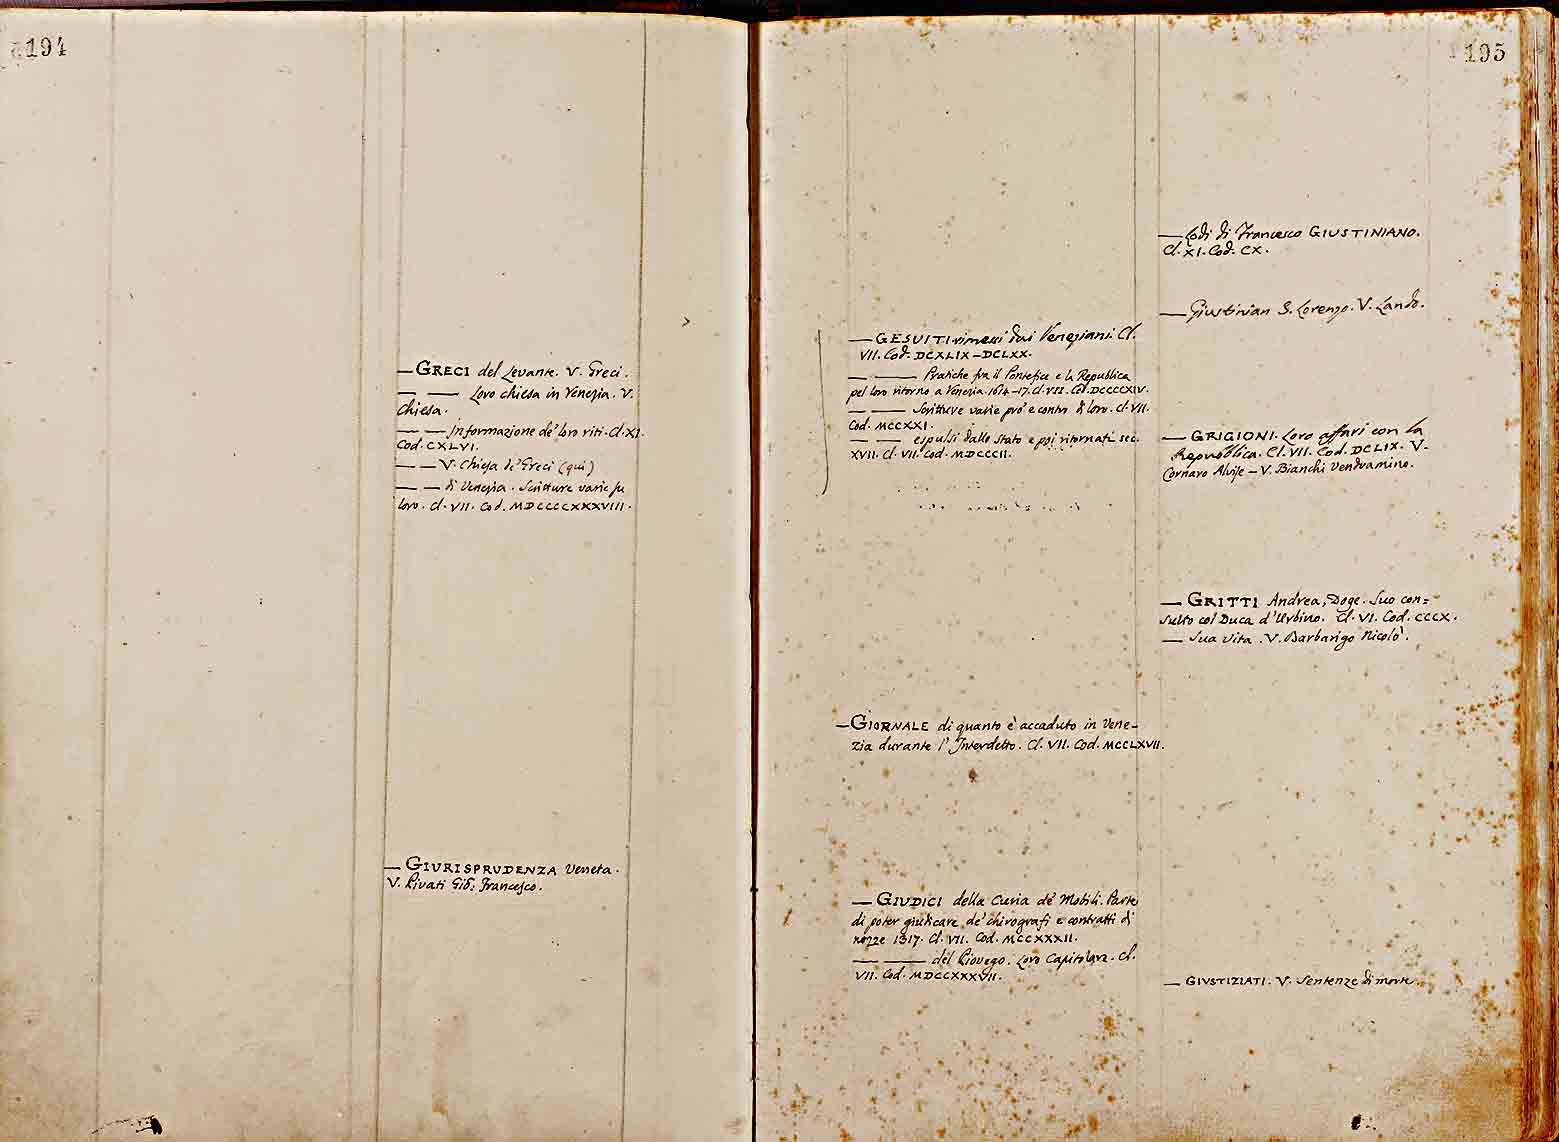 194
— GRECI del Levante. V. Greci.
— — Loro chiesa in Venezia. V.
Chiesa.
— — Informazione de' loro riti. Cl. XI.
Cod. CXLVI.
— — V. Chiesa de' Greci (qui)
— — di Venezia. Scritture varie su
loro. Cl. VII. Cod. MDCCCCXXXVIII.
— GIURISPRUDENZA Veneta.
V. Pivati Gio: Francesco.
195
— GESUITI rimessi dai Veneziani. Cl.
VII. Cod. DCXLIX–DCLXX.
— — Pratiche fra il Pontefice e la Republica
pel loro ritorno a Venezia 1614–17. Cl. VII. Cod. DCCCCXIV.
— — Scritture varie pro' e contro di loro. Cl. VII.
Cod. MCCXXI.
— — espulsi dallo Stato e poi ritornati sec.
XVII. Cl. VII. Cod. MDCCCII.
— GIORNALE di quanto è accaduto in Vene–
zia durante l'Interdetto. Cl. VII. Cod. MCCLXVII.
— GIUDICI della Curia de' Mobili. Parte
di poter giudicare de' chirografi e contratti di
nozze 1317. Cl. VII. Cod. MCCXXXII.
— — del Piovego. Loro Capitolare. Cl.
VII. Cod. MDCCXXXVII.
— Lodi di Francesco GIUSTINIANO.
Cl. XI. Cod. CX.
— Giustinian S. Lorenzo. V. Lando.
— GRIGIONI. Loro affari con la
Repubblica. Cl. VII. Cod. DCLIX. V.
Cornaro Alvise – V. Bianchi Vendramino.
— GRITTI Andrea, Doge. Suo con=
sulto col Duca d'Urbino. Cl. VI. Cod. CCCX.
— Sua vita. V. Barbarigo Nicolò.
— GIUSTIZIATI. V. Sentenze di morte.